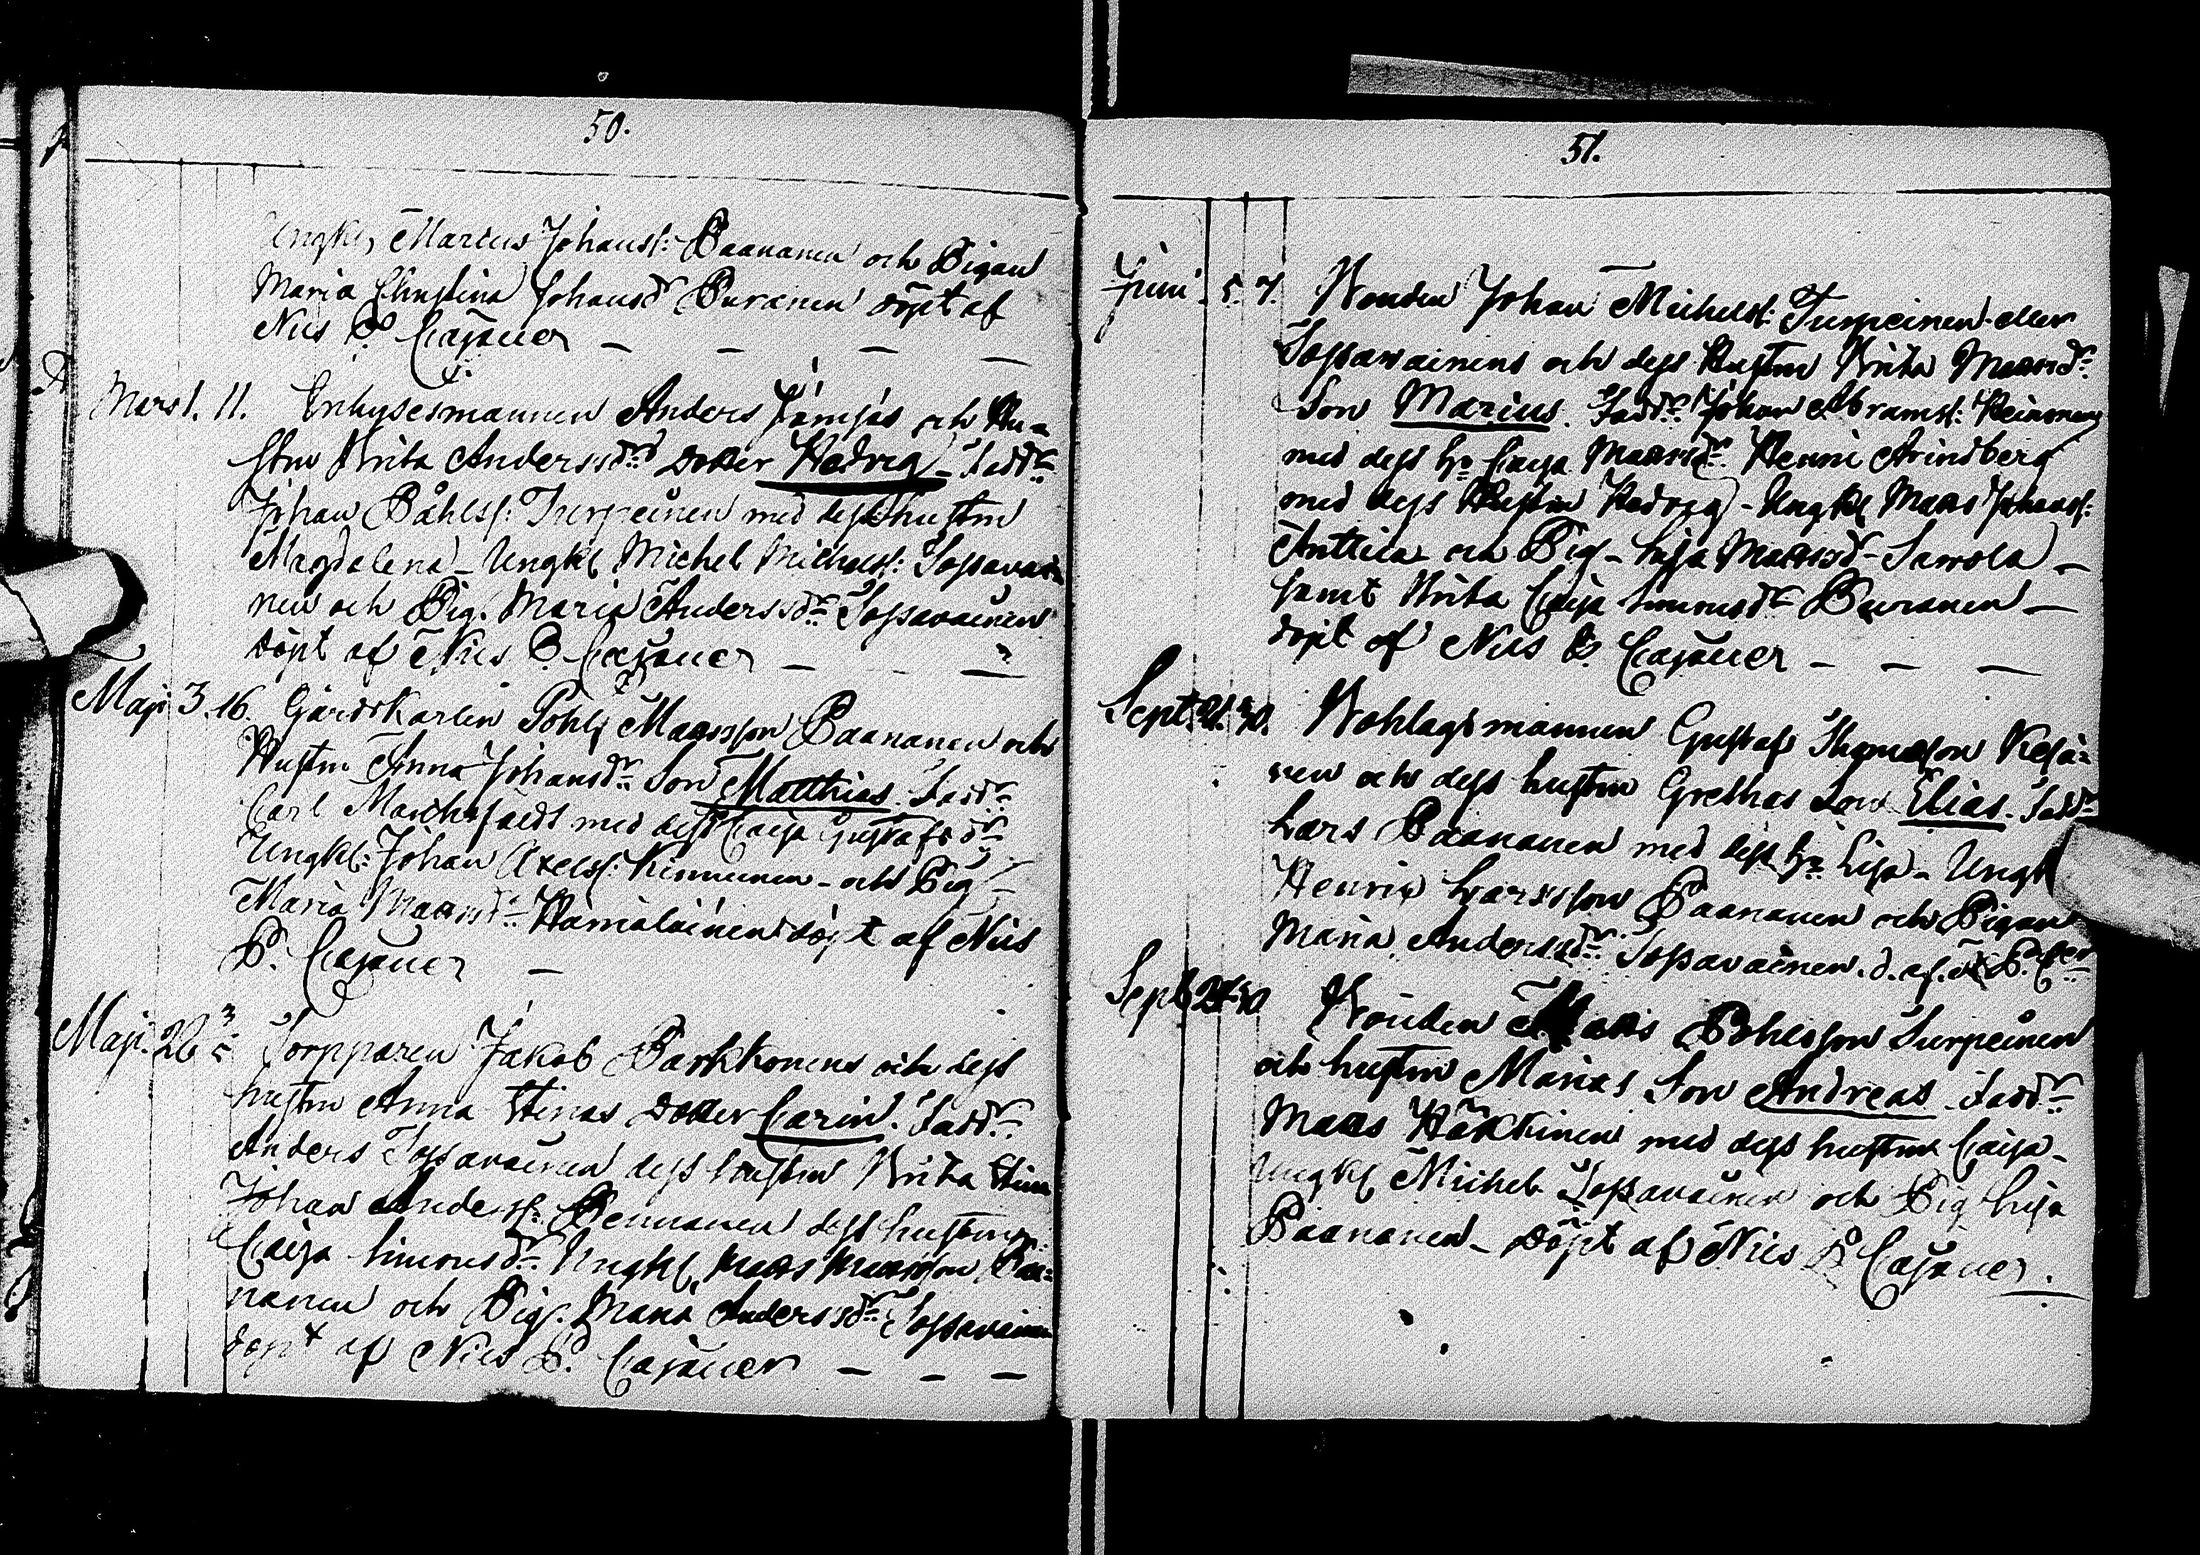 50.
Ungk: Marcus Johanss: Paananen och Pigan
Maria Christina Johansdr Puranen döpt af
Nils P. Cajaner
Mars 1. 11. Inhysesmannen Anders Jämsäs och Hu=
stru Brita Andersdr dotter Hedvig. Faddr
Johan Påhlss: Turpeinen med dess hustru
Magdalena - Ungk: Michel Michelss: Tossavai
nen och Pig. Maria Andersdr Tossavainen
döpt af Nils P. Cajaner
Maji 3. 16. Gårdskarlen Pohl Maansson Paananen och
Hustru Anna Johansdr Son Matthias. Faddr
Carl med dess Caisa Gustafsdr
Ungk: Johan Axelss: Kinnunen - och Pig
Maria Maansdr Hämäläinen döpt af Nils
P. Cajaner
Maji. 22 3/5 Torpparen Jakob Parkkonens och dess
hustru Anna Stinas dotter Carin. Faddr
Anders Tossavainen dess hustru Brita Stina
Johan Anderss: Pennanen dess hustru
Caisa Simonsdr Ungk: Maas Maansson Paa=
nanen och Pig. Maria Andersdr Tossavainen
döpt af Nils P. Cajaner
51.
Junii 5. 7. Bonden Johan Michelss: Turpeinen eller
Tossavainens och dess Hustru Brita Maansdr
Son Marcus. Faddr Johan Abramss: Heinonen
med dess h. Caisa Maansdr Henric Arindberg
med dess Hustru Hedvig - Ungk: Maas Johanss:
Anttila och Pig - Lisa Maansdr Savola
samt Brita Caisa Simonsdr Puranen
döpt af Nils P. Cajaner
Sept. 21. 30. Bohlagsmannen Gustaf Thomasson Kesä=
nen och dess hustru Grethas Son Elias. Faddr
Lars Paananen med dess h. Lisa - Ungk
Henric Larsson Paananen och Pigan
Maria Andersdr Tossavainen. d. af. P. Cer
Sept 30 Bonden Maas Pohlsson Turpeinen
och hustru Marias Son Andreas. Faddr
Maas Häkkinen med dess hustru Caisa -
Ungk: Michel Tossavainen och Pig Lisa
Paananen - döpt af Nils P. Cajaner.